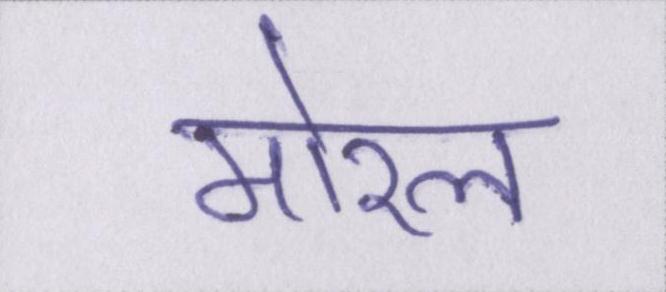 मोरल